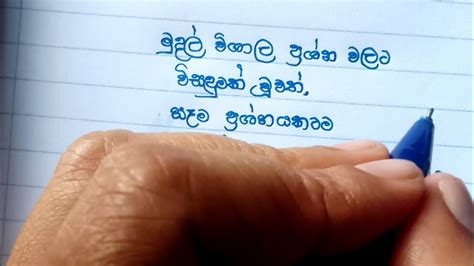 මුදල් විශාල ප්‍රශ්න වලට
විසඳුමක් වුවත්,
සෑම ප්‍රශ්නයකටම